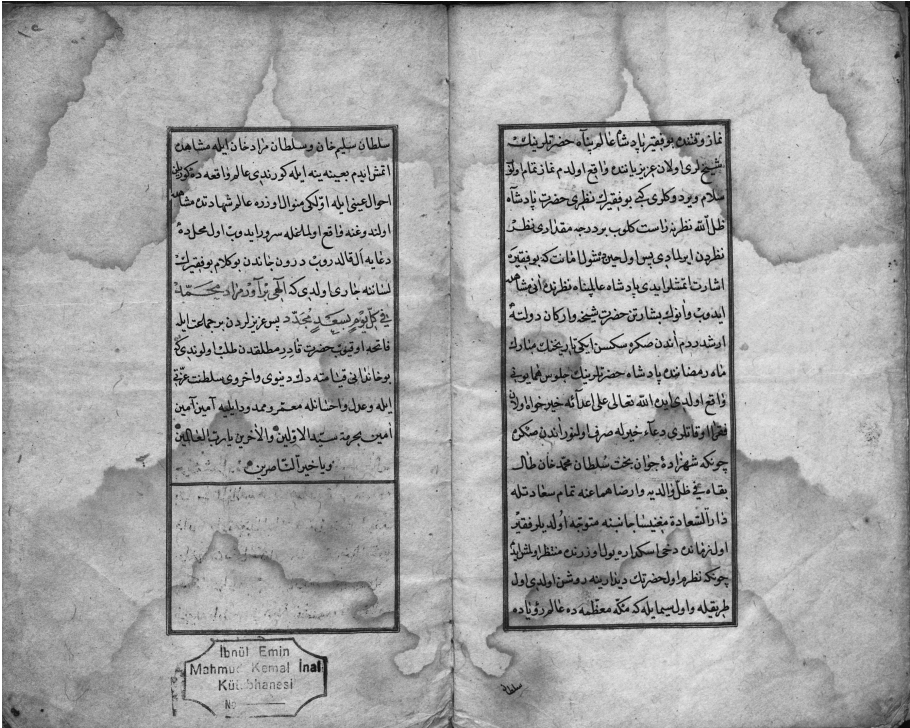 نماز وقتنده بو فقیر پادشاه عالم پناه حضرتلرینك
شیخلری اولان عزیز یاننده واقع اولدم نماز تمام اولوب
سلام ویردوكلری كبی بو فقیرك نظری حضرت پادشاه
ظل الله نظرینه راست كلوب بر درجه مقداری نظر
نظردن ایرلمادی پس اول حین
اشارت اتمشلر ایدی پادشاه عالمپناه نظرنده آنی مشاهده
ایدوب وانوك بشارتن حضرت شیخ واركان دولته
ایرشدردم آندن صكره سكسن ایكی تاریخنك مبارك
ماه رمضاننده پادشاه حضرتلرینك جلوس همایونی
واقع اولدی ایده الله تعالی علی اعدائه خیرخواه اولان
فقرا اوقاتلری دعاء خیرله صرف اولنور آندن صكره
چونكه شهزادهٔ جوان بخت سلطان محمد خان طال
بقاه فی ظل والدیه وارضاهما عنه تمام سعادتله
دار السعادة مغنیسا جانبنه متوجه اولدیلر فقیر
اول زمانده دخی اسكدار یولی اوزرنده منتظر اولمش ایدم
چونكه نظرم اول حضرتك دیدارینه روشن اولدی اول
طریقله واول سیما ایله كه مكهٔ معظمه ده عالم رؤیاده
سلطان
سلطان سلیم خان وسلطان مراد خان ایله مشاهده
اتمش ایدم بعینه ینه ایله كورندی عالم واقعه ده كورلن
احوال عینی ایله اولكی منوال اوزره عالم شهادتده مشاهده
اولندوغنه واقع اولمغله سرور ایدوب اول محلده
دعایه ال قالدروب درون جاندن بو كلام بو فقیرك
لساننه جاری اولدی كه الهی برآور مراد محمد
فی كل یوم بسعد مجدد پس عزیزلردن بر جماعت ایله
فاتحه اوقیوب حضرت قادر مطلقدن طلب اولوندی كه
بو خاندانی قیامته دك دنیوی واخروی سلطنت عزتی
ایله وعدل واحسانله معمر وممدود ایلیه آمین آمین
آمین بحرمة سید الاولین والآخرین یا رب العالمین
ویا خیر الناصرین
İbnül Emin
Mahmud Kemal İnal
Kütübhanesi
No